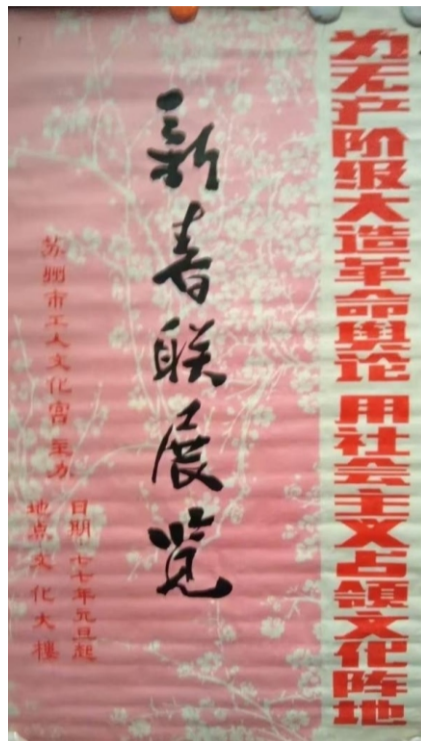 为无产阶级大造革命舆论 用社会主义占领文化阵地
新春联展览
苏州市工人文化宫 主办
日期:七七年元旦起
地点 文化大楼